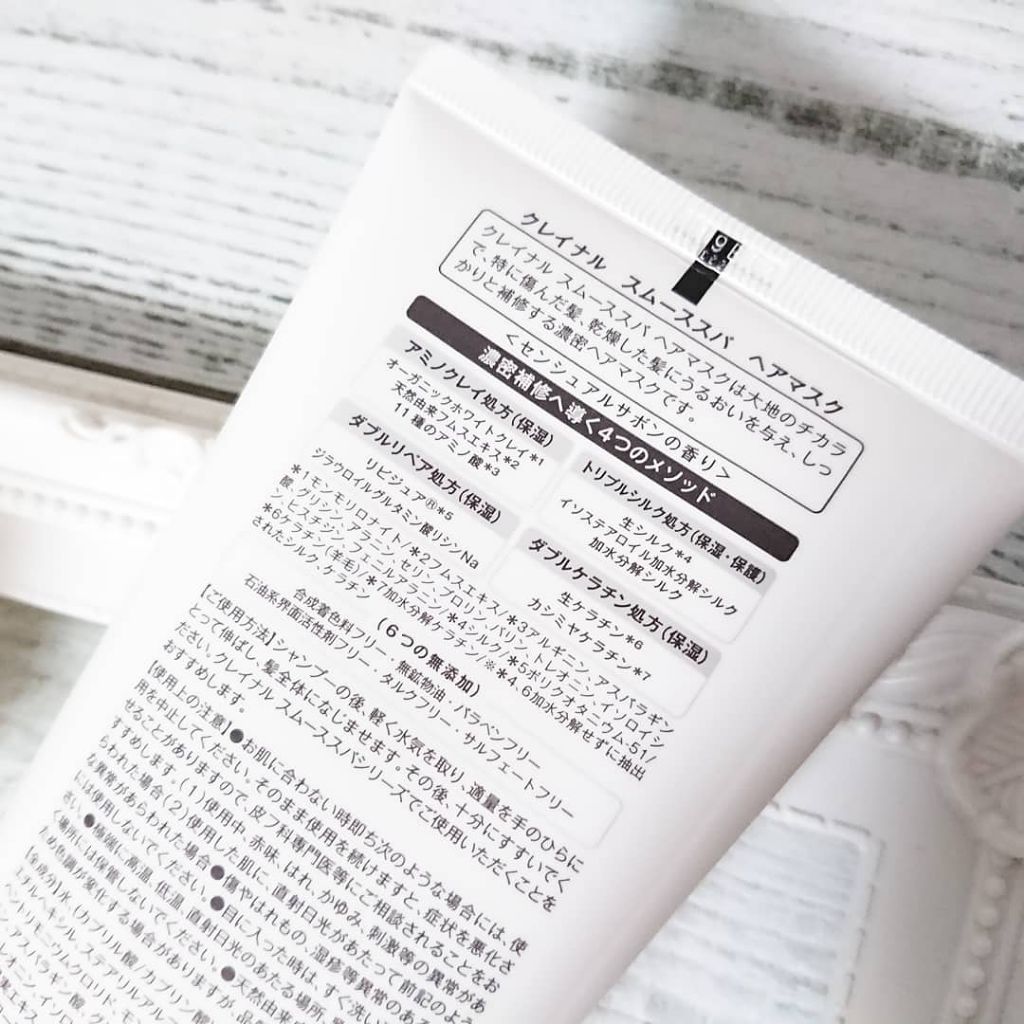 クレイナル スムーススパ ヘアマスク
クレイナル スムーススパ ヘアマスクは大地のチカラ
で、特に傷んだ髪、乾燥した髪にうるおいを与え、しっ
かりと補修する濃密ヘアマスクです。
<センシュアルサボンの香り>
濃密補修へ導く4つのメソッド
アミノクレイ処方(保湿)
オーガニックホワイトクレイ*1
天然由来フムスエキス*2
11種のアミノ酸*3
トリプルシルク処方(保湿・保護)
生シルク*4
イソステアロイル加水分解シルク
加水分解シルク
ダブルリペア処方(保湿)
リピジュア®*5
ジラウロイルグルタミン酸リシンNa
ダブルケラチン処方(保湿)
生ケラチン*6
カシミヤケラチン*7
*1モンモリロナイト/*2フムスエキス/*3アルギニン、アスパラギン
酸、グリシン、アラニン、セリン、プロリン、バリン、トレオニン、イソロイシ
ン、ヒスチジン、フェニルアラニン/*4シルク/*5ポリクオタニウム-51/
*6ケラチン(羊毛)/*7加水分解ケラチン ※*4、6加水分解せずに抽出
されたシルク・ケラチン
(6つの無添加)
合成着色料フリー・無鉱物油・パラベンフリー
石油系界面活性剤フリー・タルクフリー・サルフェートフリー
【ご使用方法】シャンプーの後、軽く水気を取り、適量を手のひらに
とって伸ばし、髪全体になじませます。その後、十分にすすいでく
ださい。クレイナル スムーススパシリーズでご使用いただくことを
おすすめします。
【使用上の注意】●お肌に合わない時即ち次のような場合には、使
用を中止してください。そのまま使用を続けますと、症状を悪化さ
せることがありますので、皮フ科専門医等にご相談されることをお
すすめします。(1)使用中、赤味、はれ、かゆみ、刺激等の異常があ
らわれた場合(2)使用した肌に、直射日光があたって前記のよう
な異常があらわれた場合●傷やはれもの、湿疹等異常のある
には使用しないでください。●目に入った時は、すぐ洗い
さい。●極端に高温、低温、直射日光のあたる場所
場所には保管しないでください。●天然由来
ため色調が変化する場合がありますが、品
【全成分】水、(カプリル酸/カプリン酸
エチルヘキシル、ステアリルアル